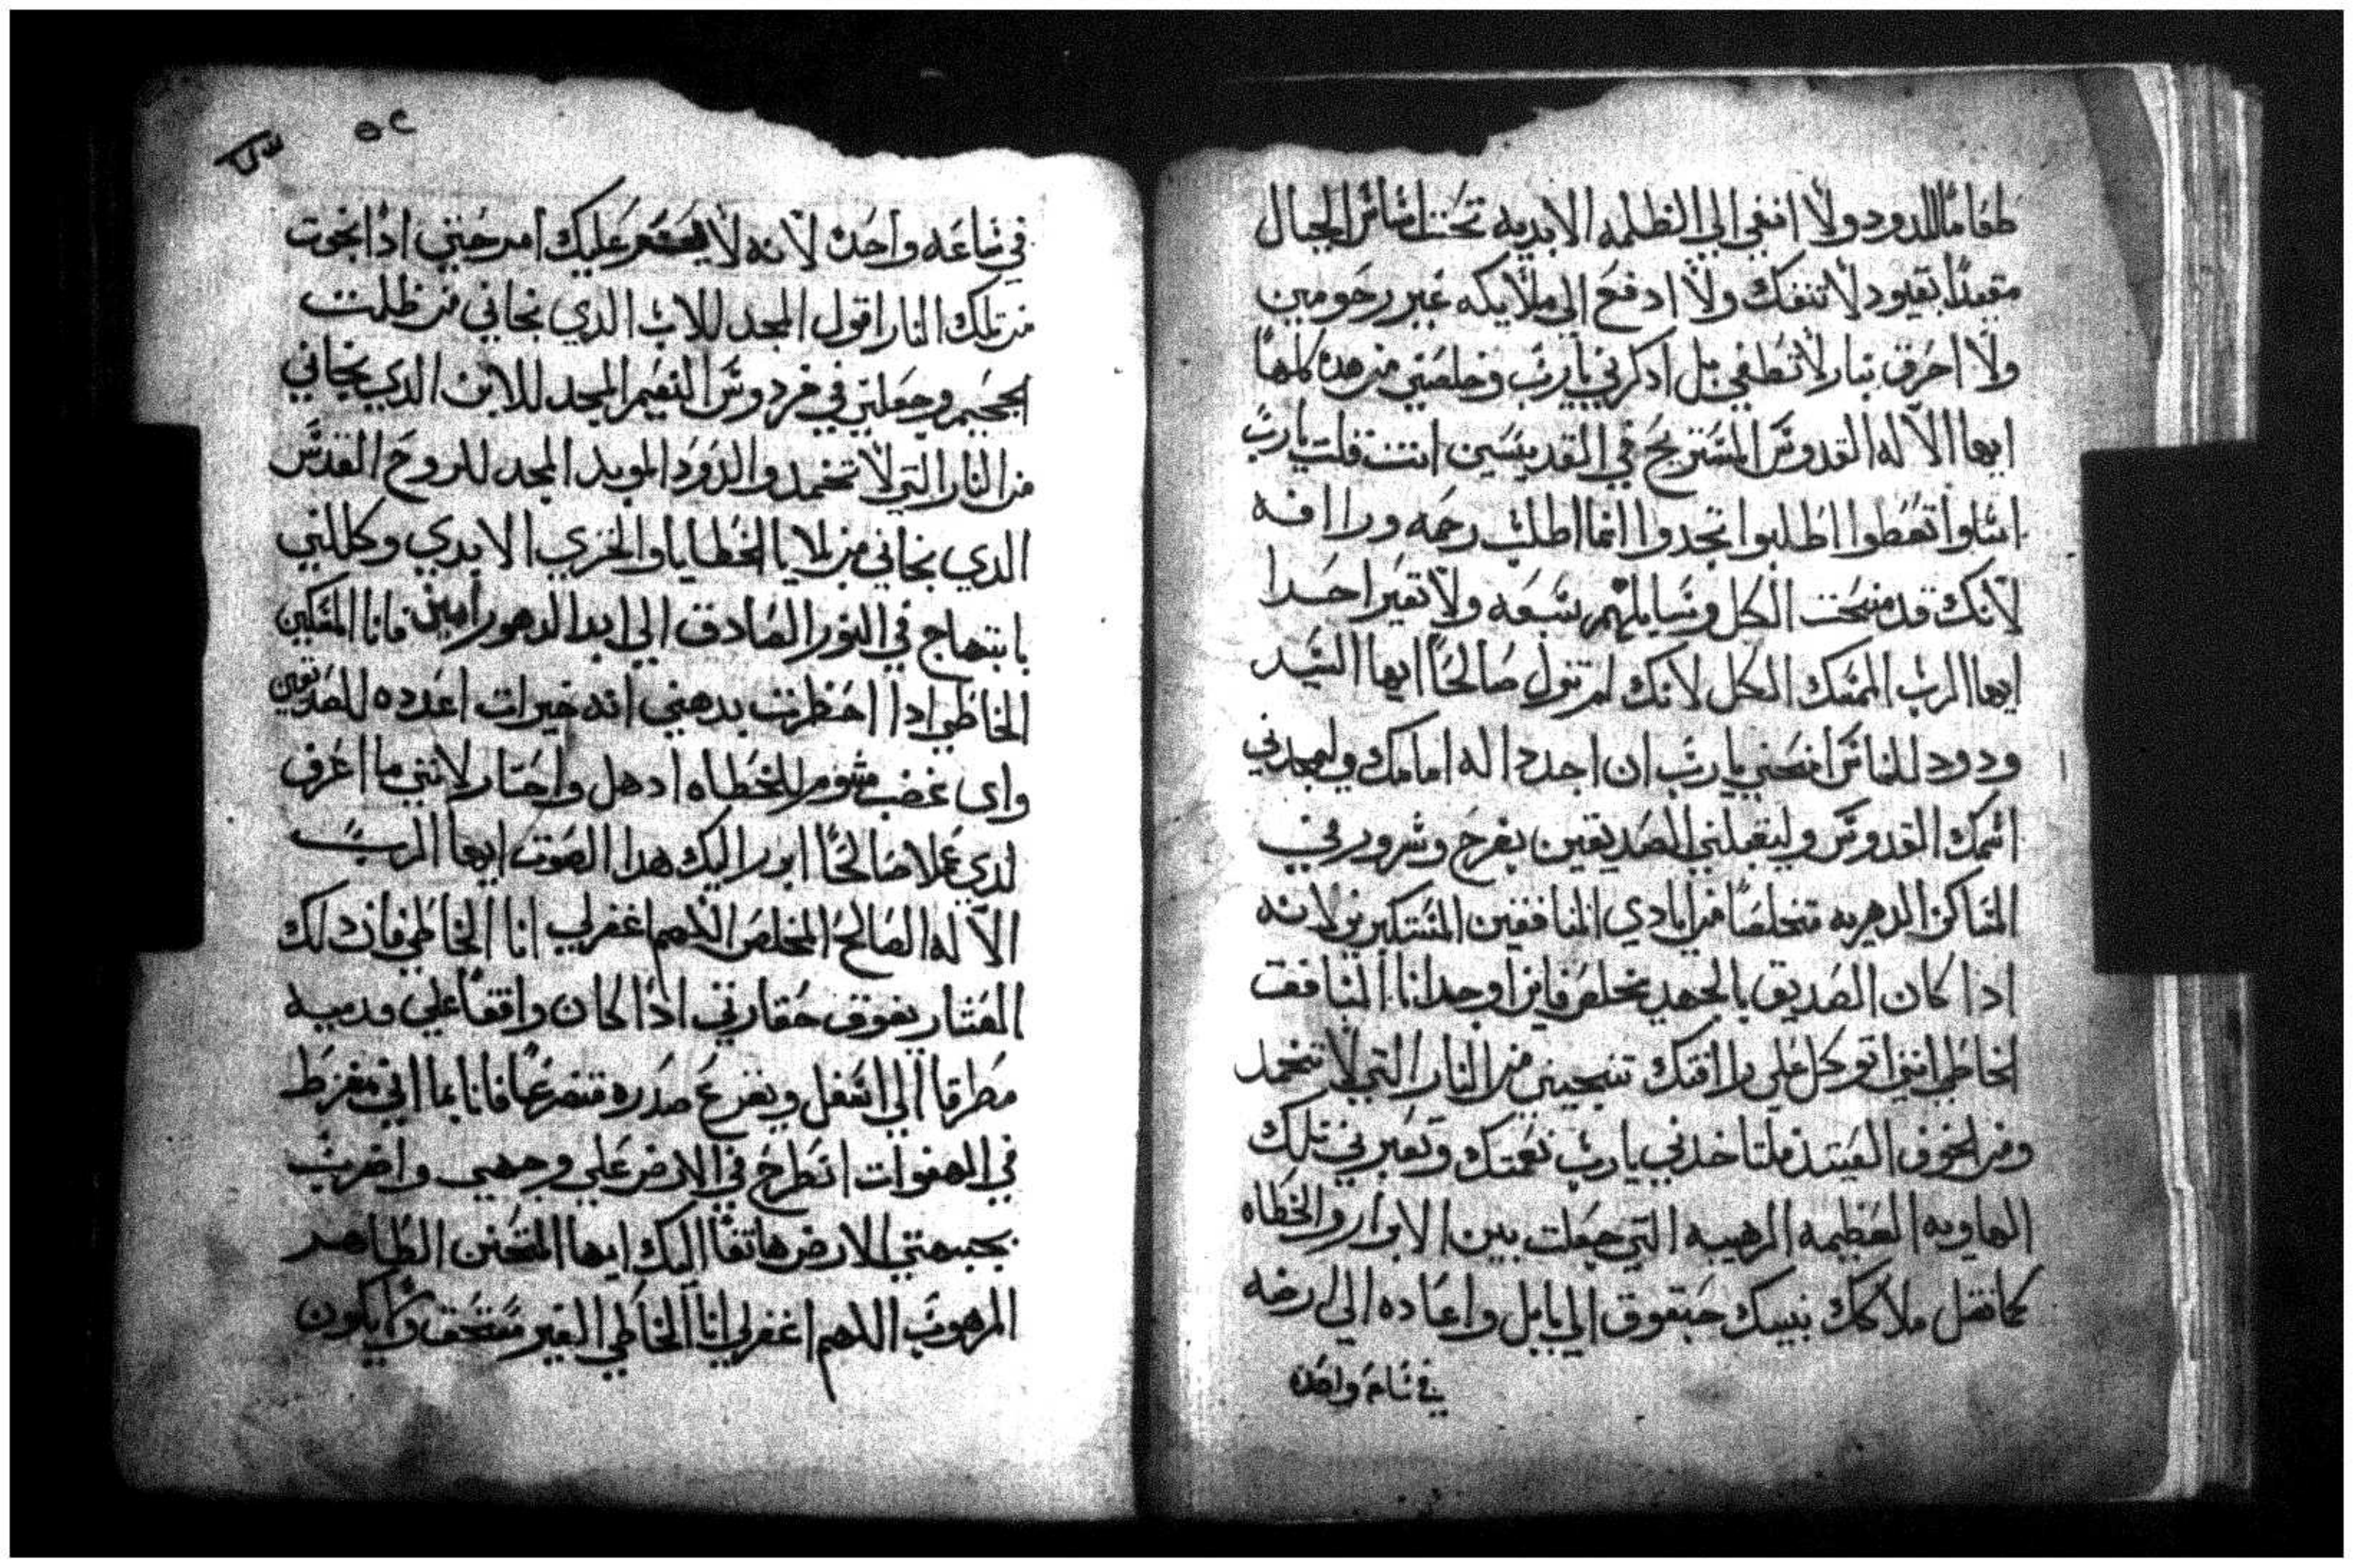 طعاما للدود ولا انفي الي الظلمه الابديه تحت اساس الجبال
مقيدًا بقيود لا تنفك ولا ادفع الي ملايكه غير رحومين
ولا احرق بنار لا تطفي بل ادكرني يا رب وخلصني من هده كلها
ايها الاله القدوس المستريح في القديسين انت قلت يا رب
اسلوا تعطوا اطلبوا تجدوا انما اطلب رحمه ورافه
لانك قد منحت الكل وسايلهم بسعه ولا تعير احدا
ايها الرب الممسك الكل لانك لم تزل صالحًا ايها السيد
ودود للناس امنحني يا رب ان اجدد اله امامك وليمجدني
اسمك القدوس وليقبلني الصديقين بفرح وسرور في
المساكن الدهريه متخلصًا من ايادي المنافقين المستكبرين لانه
اذا كان الصديق بالجهد يخلص فاين اوجد انا المنافق
الخاطي انني اتوكل علي رافتك تنجيني من النار التي لا تخمد
ومن الخوف العتيد فلتاخدني يا رب نعمتك وتعبرني تلك
الهاويه العظيمه الرهيبه التي جعلت بين الابرار والخطاه
كما نقل ملاكك نبيك حبقوق الي بابل واعاده الي ارضه
في ساعه واحده
٥٢
في ساعه واحده لانه لا يعسر عليك امر حتي اذا نجوت
من تلك النار اقول المجد للاب الدي نجاني من ظلمت
الجحيم وجعلني في فردوس النعيم المجد للابن الدي نجاني
من النار التي لا تخمد والدود الموبد المجد للروح القدس
الدي نجاني من بلايا الخطايا والخزي الابدي وكللني
بابتهاج في النور الصادق الي ابد الدهور امين فانا المسكين
الخاطي ادا احظرت بدهني انه خيرات اعدده للصديقين
واى غضب مثوم للخطاه ادهل واحتار لانني ما اعرف
لدي عملا صالحًا ابورا اليك هدا الصوت ايها الرب
الاله الصالح المخلص اللهم اغفر لي انا الخاطي فان دلك
العشار يفوق حقارتي اذا كان واقفًا علي قدميه
مطرقا الي اسفل ويقرع صدره متضرعًا فانا بما اني مفرط
في الهفوات انطرح في الارض علي وجهي واضرب
بجبهتي الارض هاتفًا اليك ايها المتحنن الطاهر
المرهوب اللهم اغفر لي انا الخاطي الغير مستحق ولا يكون